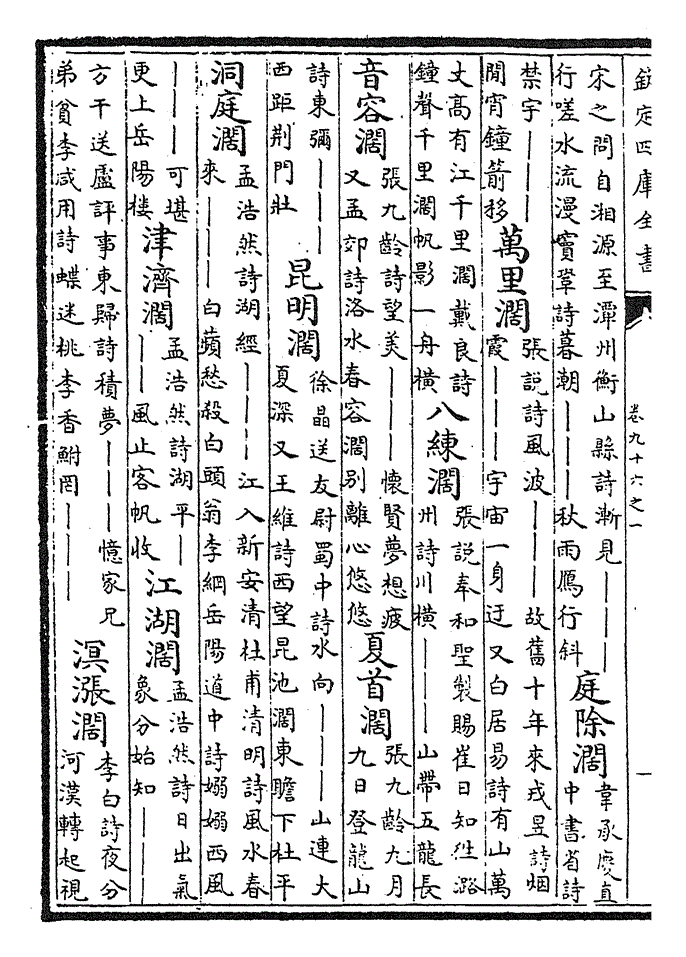 欽定四庫全書 卷九十六之一
宋之問自湘源至潭州衡山縣詩漸見———行嗟水流漫竇鞏詩暮潮———秋雨鴈行斜 庭除濶 韋承慶直中書省詩
禁宇———閒宵鐘箭移 萬里濶 張説詩風波———故舊十年來戎昱詩烟霞———宇宙一身迂又白居易詩有山萬
丈髙有江千里濶戴良詩鐘聲千里濶帆影一舟橫 八練濶 張説奉和聖製賜崔日知往潞州詩川橫———山帶五龍長
音容濶 張九齡詩望美———懷賢夢想疲又孟郊詩洛水春容濶别離心悠悠 夏首濶 張九齡九月九日登龍山
詩東彌———西距荆門壯 昆明濶 徐晶送友尉蜀中詩水向———山連大夏深又王維詩西望昆池濶東瞻下杜平
洞庭濶 孟浩然詩湖經———江入新安清杜甫清明詩風水春來———白蘋愁殺白頭翁李綱岳陽道中詩嫋嫋西風
———可堪更上岳陽樓 津濟濶 孟浩然詩湖平———風止客帆收 江湖濶 孟浩然詩日出氣象分始知———
方干送盧評事東歸詩積夢———憶家兄弟貧李咸用詩蝶迷桃李香鮒罔——— 溟漲濶 李白詩夜分河漢轉起視